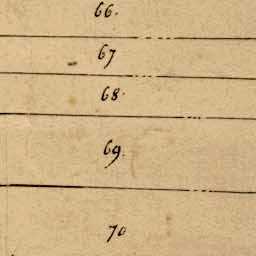 66.
67
68.
69.
70